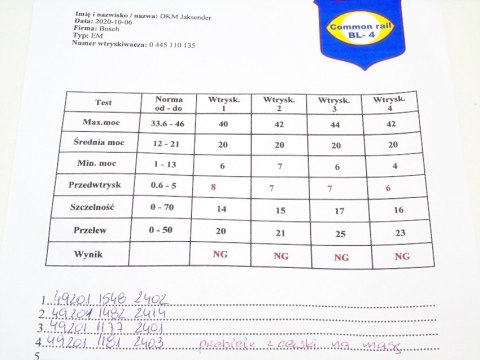 Imię i nazwisko / nazwa: DKM Jaksender
Data: 2020-10-06
Firma: Bosch
Typ: EM
Numer wtryskiwacza: 0 445 110 135
Common rail
BL- 4
Test Norma od - do Wtrysk. 1 Wtrysk. 2 Wtrysk. 3 Wtrysk. 4
Max.moc 33.6 - 46 40 42 44 42
Średnia moc 12 - 21 20 20 20 20
Min. moc 1 - 13 6 7 6 4
Przedwtrysk 0.6 - 5 8 7 7 6
Szczelność 0 - 70 14 15 17 16
Przelew 0 - 50 20 21 25 23
Wynik NG NG NG NG
1. 49201 1548 2402
2. 49201 1482 2414
3. 49201 1177 2401
4. 49201 1181 2403 przebicie z cewki na masę
5